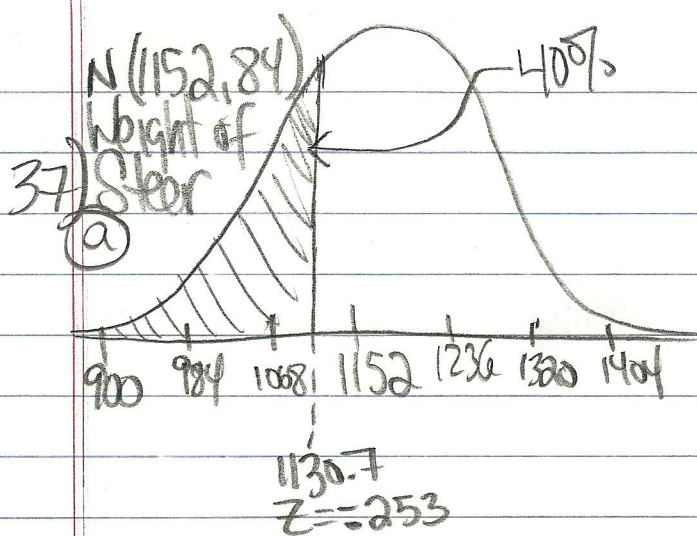 N(1152,84)
Weight of
37) Steer
a
40%
900 984 1068 1152 1236 1320 1404
1130.7
Z=-.253